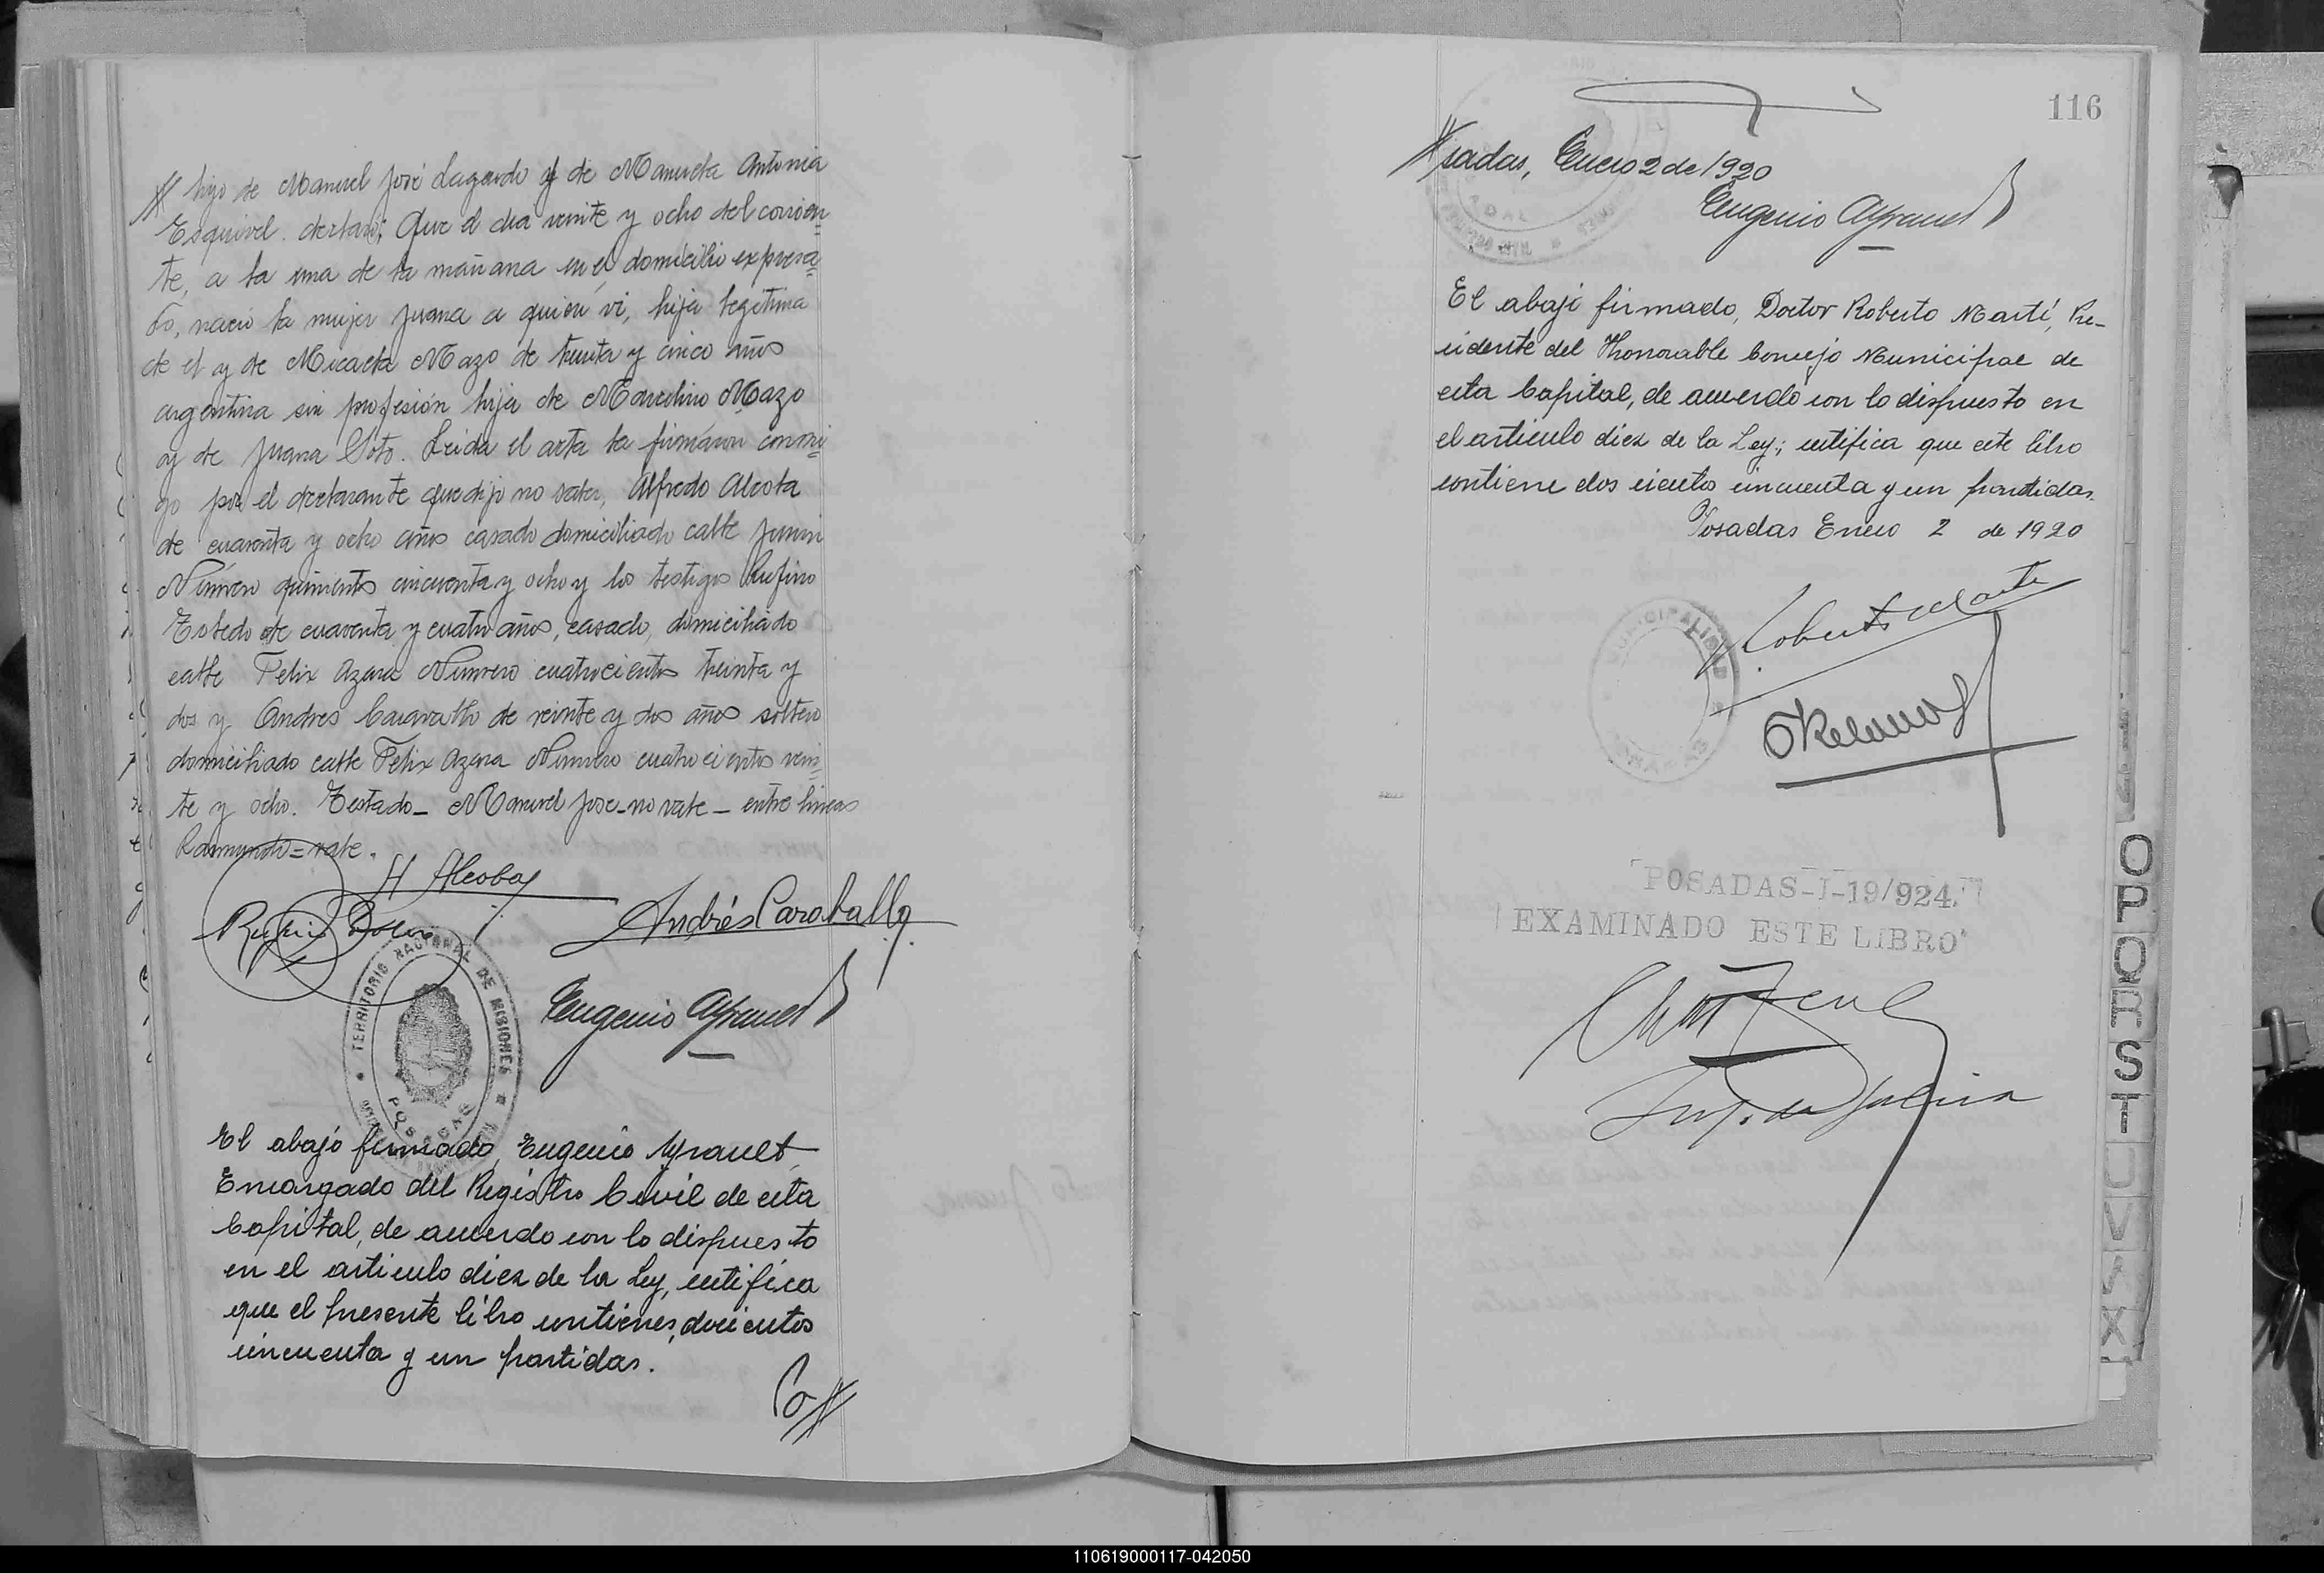 hijo de Manuel José Lagardo y de Manuela Antonia
Esquivel. declaró; Que el dia veinte y ocho del corrien=
te, a la una de la mañana en el domicilio expresa=
do, nació la mujer Juana a quien vi, hija legítima
de el y de Micaela Mazo de treinta y cinco años
argentina sin profesión hija de Marcelino Mazo
y de Juana Soto. Leida el acta la firmaron conmi=
go por el declarante que dijo no saber, Alfredo Alcoba
de cuarenta y ocho años casado domiciliado calle Junin
Número quinientos cincuenta y ocho y los testigos Rufino
de cuarenta y cuatro años, casado, domiciliado
calle Felix Azara Número cuatrocientos treinta y
dos y Andres Caravallo de veinte y dos años soltero
domiciliado calle Felix Azara Número cuatrocientos vein=
te y ocho. Testado _ Manuel Jose _ no vale _ entre lineas
Raimundo = vale.
Alcoba
Rufino
Andrés Caraballo
Eugenio Ayrault
TERRITORIO NACIONAL DE MISIONES
POSADAS
El abajo firmado, Eugenio Ayrault,
Encargado del Registro Civil de esta
Capital, de acuerdo con lo dispuesto
en el articulo diez de la Ley, certifica
que el presente libro contienes, docientos
cincuenta y un partidas.
116
Posadas, Enero 2 de 1920
Eugenio Ayrault
El abajo firmado, Doctor Roberto Martí, Pre-
sidente del Honorable Concejo Municipal de
esta Capital, de acuerdo con lo dispuesto en
el articulo diez de la Ley; certifica que este libro
contiene dos cientos cincuenta y un partidas.
Posadas Enero 2 de 1920
Roberto Martí
MUNICIPALIDAD
POSADAS
POSADAS-I-19/924.
EXAMINADO ESTE LIBRO
O
P
Q
R
S
T
U
V
X
110619000117-042050